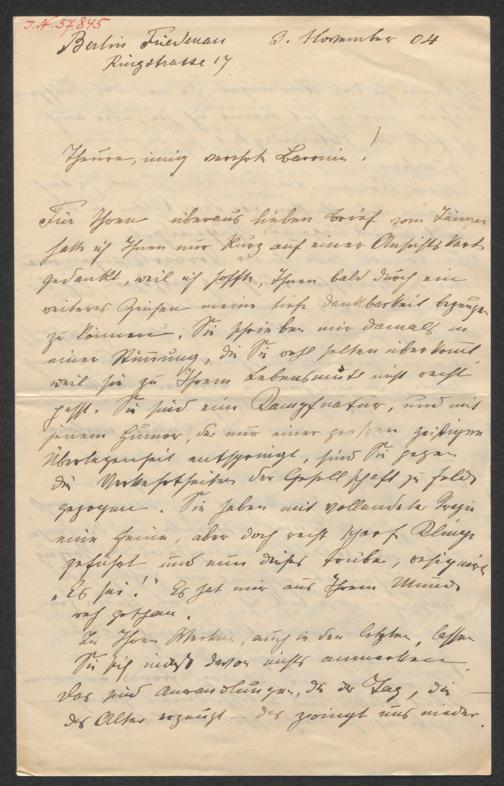 J.N. 57.845
Berlin Friedenau 3. November 04
Ringstrasse 17
Theure, innig verehrte Baronin!
Für Ihren überaus lieben Brief vom Jänner
hatte ich Ihnen nur kurz auf einer Ansichtskarte
gedankt, weil ich hoffte, Ihnen bald durch ein
weiteres Zeichen meine tiefe Dankbarkeit bezeugen
zu können. Sie schrieben mir damals in
einer Stimmung, die Sie wohl selten überkommt,
weil sie zu Ihrem Lebensmute nicht recht
passt. Sie sind eine Kampfnatur, und mit
jenem Humor, der nur einer großen geistigen
Überlegenheit entspringt, sind Sie gegen
die Verkehrtheiten der Gesellschaft zu Felde
gezogen. Sie haben mit vollendeter Grazie
eine feine, aber doch recht scharfe Klinge
geführt und nun dieses trübe, resignierte
„Es sei!" Es hat mir aus Ihrem Munde
weh gethan.
In Ihren Werken, auch in den letzten, lassen
Sie sich indeß davon nichts anmerken.
Das sind Anwandlungen, die der Tag, die
das Alter erzeugt – das zwingt uns nieder.